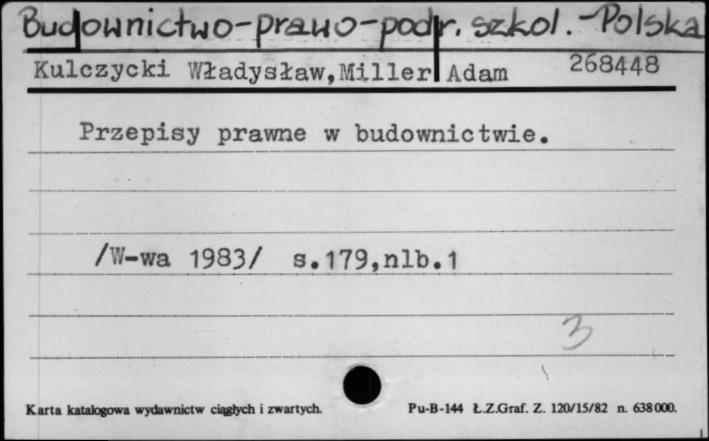 Budownictwo-prawo-podr. szkol.-Polska
Kulczycki Władysław,Miller Adam 268448
Przepisy prawne w budownictwie.
/W-wa 1983/ s.179,nlb.1
3
Karta katalogowa wydawnictw ciągłych i zwartych. Pu-B-144 Ł.Z.Graf. Z. 120/15/82 n. 638000.